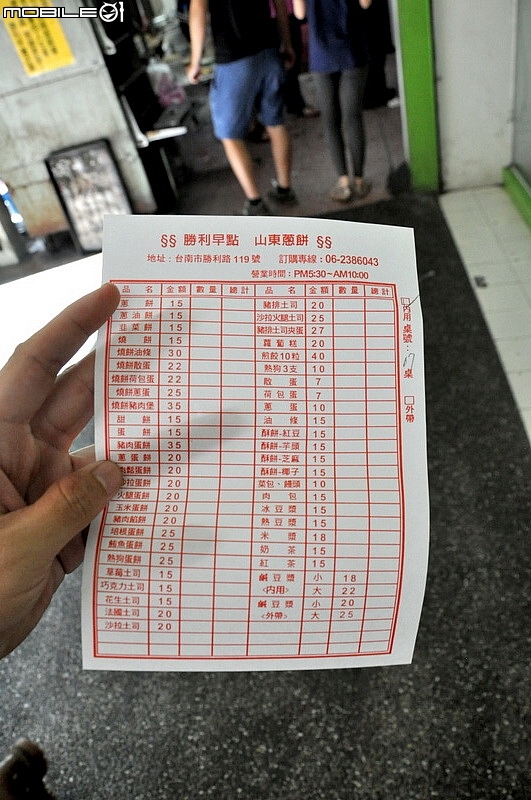 MOBILE01
§§ 勝利早點 山東蔥餅 §§
地址：台南市勝利路119號 訂購專線：06-2386043
營業時間：PM5:30~AM10:00
品名 金額 數量 總計 品名 金額 數量 總計
蔥餅 15 豬排土司 20
蔥油餅 15 沙拉火腿土司 25
韭菜餅 15 豬排土司夾蛋 27
燒餅 15 蘿蔔糕 20
燒餅油條 30 煎餃10粒 40
燒餅散蛋 22 熱狗3支 10
燒餅荷包蛋 22 散蛋 7
燒餅蔥蛋 25 荷包蛋 7
燒餅豬肉堡 35 蔥蛋 10
甜餅 15 油條 15
蛋餅 15 酥餅-紅豆 15
豬肉蛋餅 35 酥餅-芋頭 15
蔥蛋餅 20 酥餅-芝麻 15
鬆蛋餅 20 酥餅-椰子 15
拉蛋餅 20 菜包、饅頭 10
火腿蛋餅 20 肉包 15
玉米蛋餅 20 冰豆漿 15
豬肉餡餅 20 熱豆漿 15
培根蛋餅 25 米漿 18
鮪魚蛋餅 25 奶茶 15
熱狗蛋餅 25 紅茶 15
草莓土司 15 鹹豆漿 小 18
巧克力土司 15 <內用> 大 22
花生土司 15 鹹豆漿 小 20
法國土司 20 <外帶> 大 25
沙拉土司 20
□內用 桌號： 17 桌
□外帶